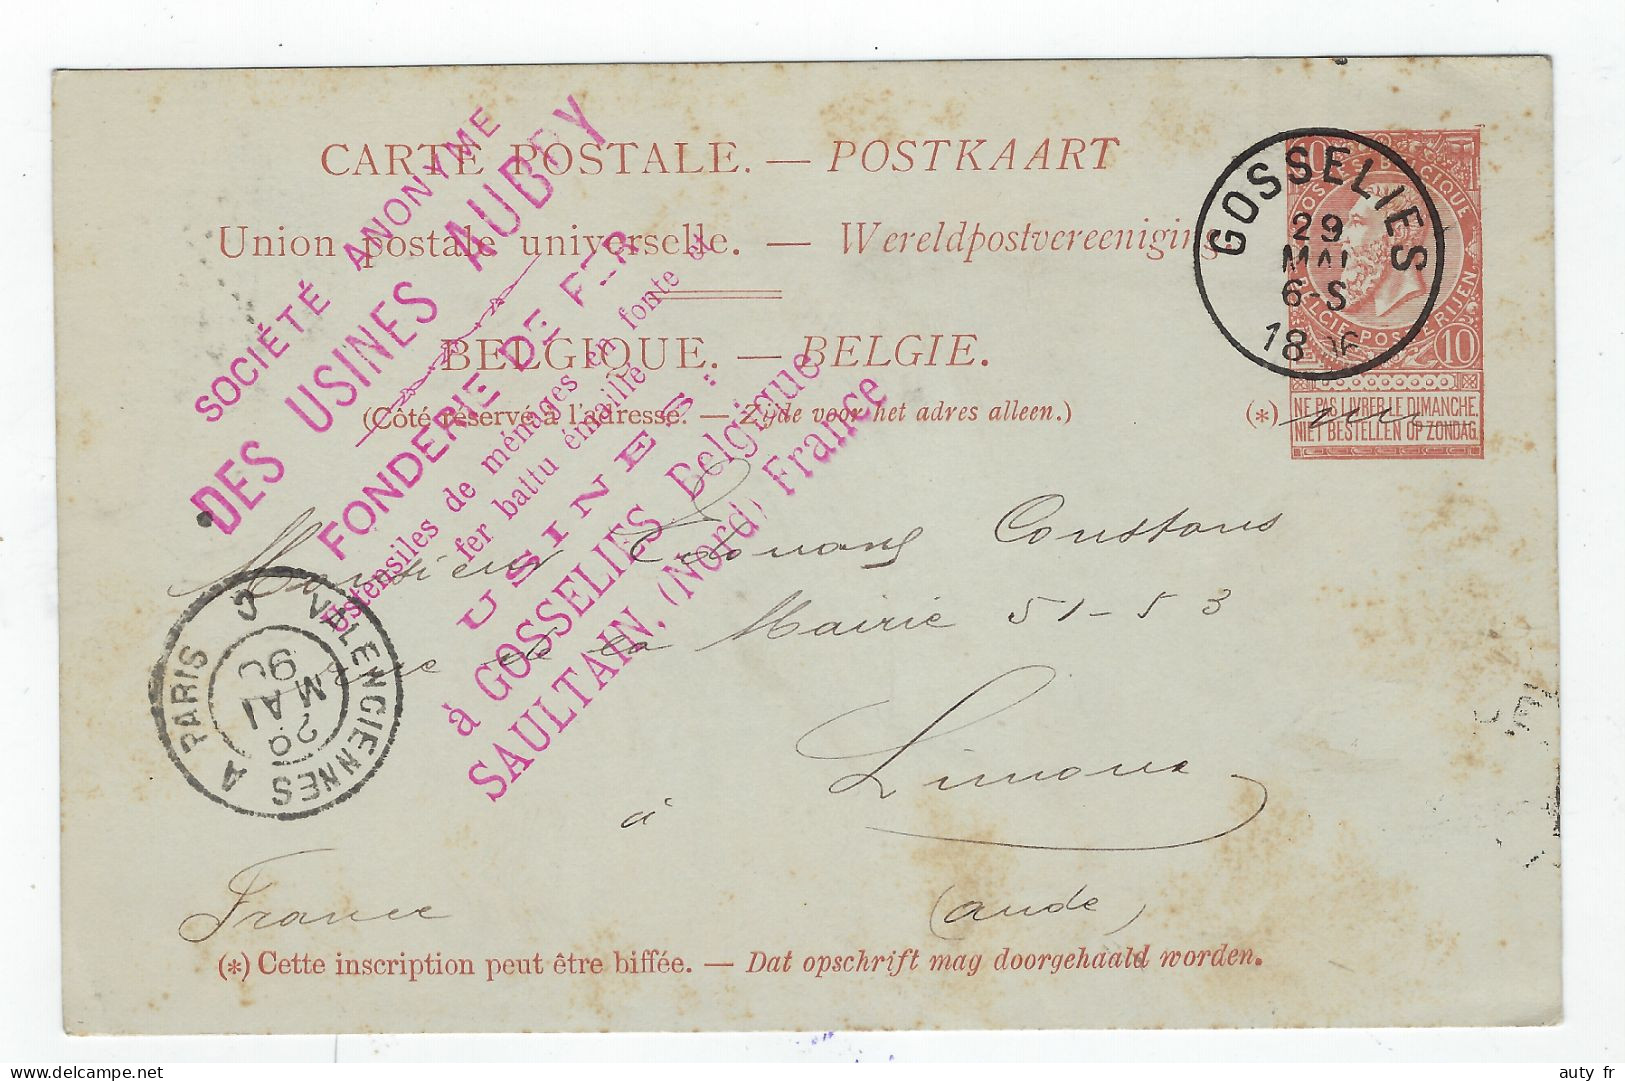 CARTE POSTALE. — POSTKAART
Union postale universelle. — Wereldpostvereeniging.
BELGIQUE. — BELGIE.
(Côté réservé à l'adresse. — Zijde voor het adres alleen.)
(*)
NE PAS LIVRER LE DIMANCHE.
NIET BESTELLEN OP ZONDAG.
10
POSTES BELGIQUE
BELGIE POSTERIJEN
10
GOSSELIES
29
MAI
6-S
18
SOCIÉTÉ ANONYME
DES USINES AUBRY
FONDERIE DE FER
Ustensiles de ménages en fonte et
fer battu émaillé
USINES:
à GOSSELIES Belgique
SAULTAIN. (Nord) France
Monsieur Edouard Constans
Rue de la Mairie 51-53
à Limoux
(Aude)
France
VALENCIENNES A PARIS
29
MAI
96
(*) Cette inscription peut être biffée. — Dat opschrift mag doorgehaald worden.
auty fr